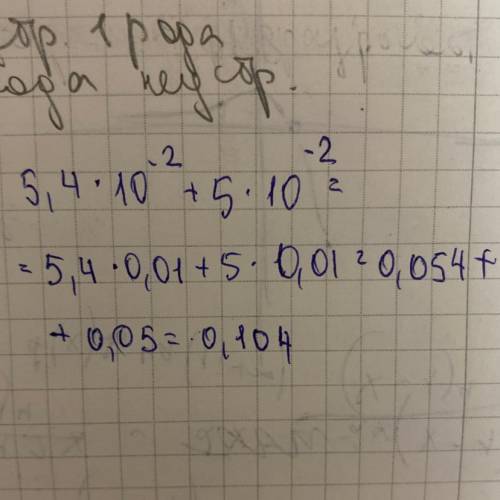 1 рода
неустр.
5,4 · 10^-2 + 5 · 10^-2 =
= 5,4 · 0,01 + 5 · 0,01 = 0,054 +
+ 0,05 = 0,104